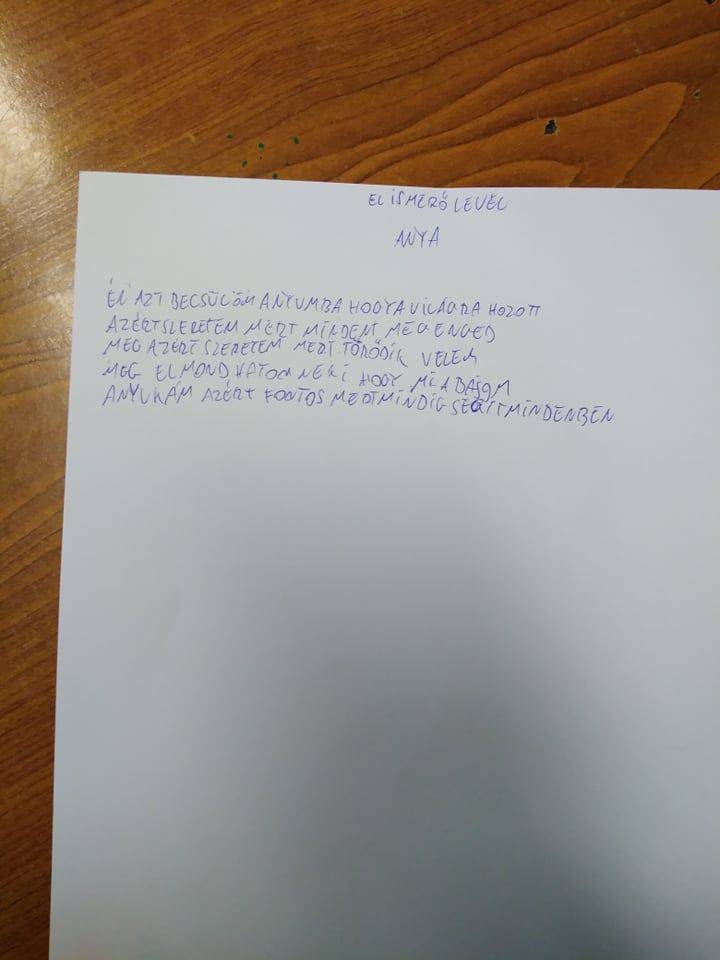 ELISMERŐ LEVÉL
ANYA
ÉN AZT BECSÜLÖM ANYUMBA HOGY A VILÁGRA HOZOTT
AZÉRT SZERETEM MERT MINDENT MEG ENGED
MEG AZÉRT SZERETEM MERT TÖRŐDIK VELEM
MEG ELMOND HATOM NEKI HOGY MI A BAJOM
ANYUKÁM AZÉRT FONTOS MERT MINDIG SEGÍT MINDENBEN